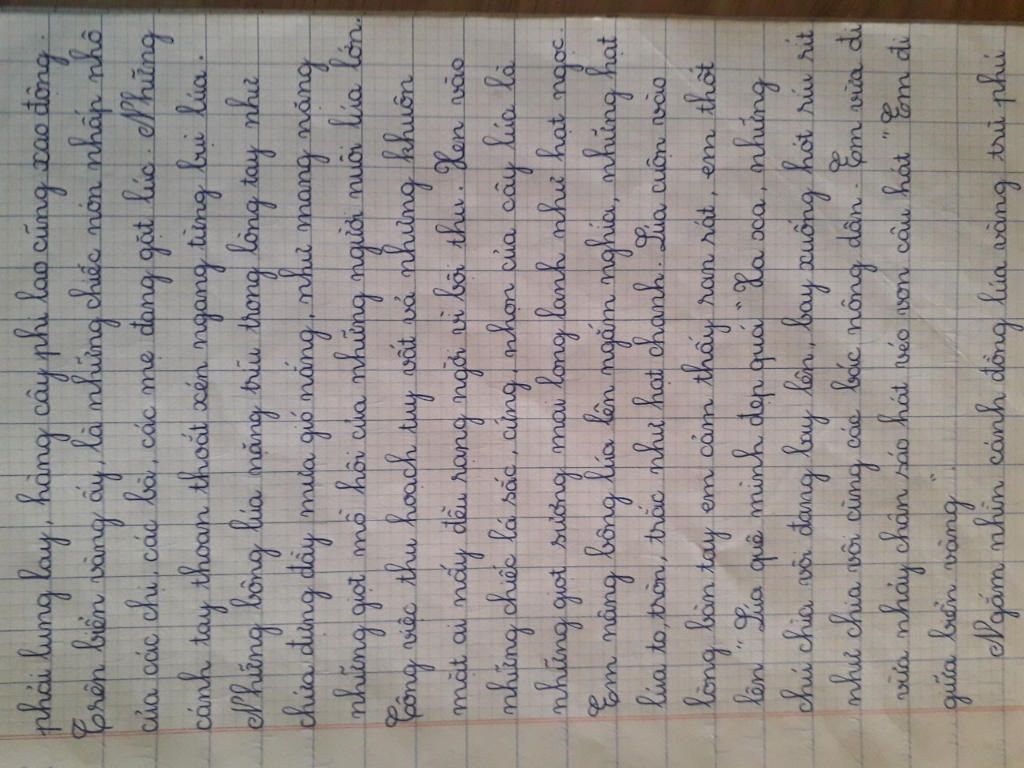 phải lung lay, hàng cây phi lao cũng xao động.
Trên biển vàng ấy, là những chiếc nón nhấp nhô
của các chị, các bà, các mẹ đang gặt lúc. Những
cánh tay thoan thoắt xén ngang từng bụi lúa.
Những bông lúa nặng trĩu trong lòng tay như
chứa đựng đầy mưa gió nắng, như mang nặng
những giọt mồ hôi của những người nuôi lúa lớn.
Công việc thu hoạch tuy vất vả nhưng khuôn
mặt ai nấy đều rạng ngời vì bội thu. Xen vào
những chiếc lá sắc, cứng, nhọn của cây lúa là
những giọt sương mai long lanh như hạt ngọc.
Em nâng bông lúa lên ngắm nghía, những hạt
lúa to, tròn, trắc như hạt chanh. Lúa cuộn vào
lòng bàn tay em cảm thấy ran rát, em thốt
lên "Lúa quê mình đẹp quá" Xa xa, những
chú chia vôi đang bay lên, bay xuống hót ríu rít
như chia vôi cùng các bác nông dân. Em vừa đi
vừa nhảy chân sáo hát véo von câu hát "Em đi
giữa biển vàng".
Ngắm nhìn cánh đồng lúa vàng trù phú